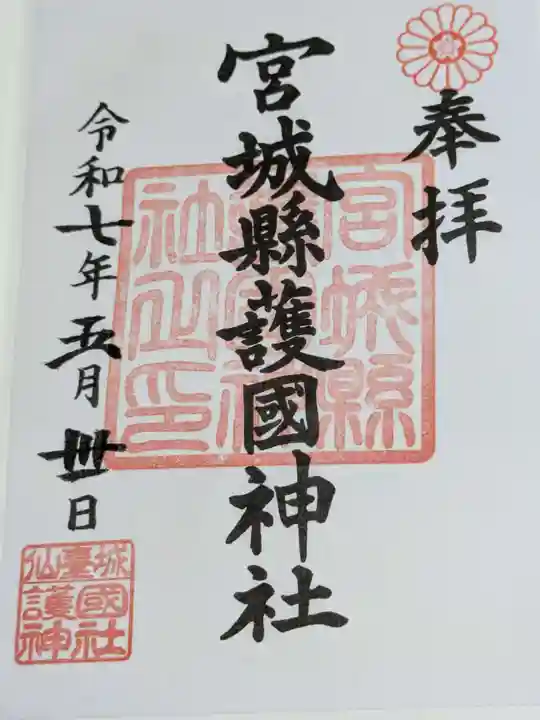 奉拝
宮城縣護國神社
宮城縣
護國神
社之印
令和七年五月卅日
仙臺城
護國
神社